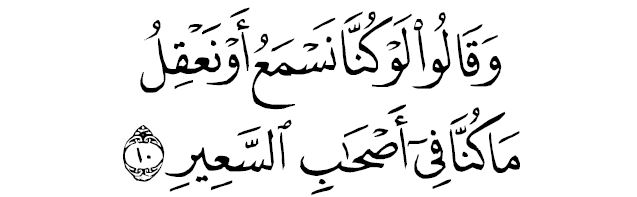 وَقَالُوا۟ لَوْ كُنَّا نَسْمَعُ أَوْ نَعْقِلُ
مَا كُنَّا فِىٓ أَصْحَٰبِ ٱلسَّعِيرِ ١٠